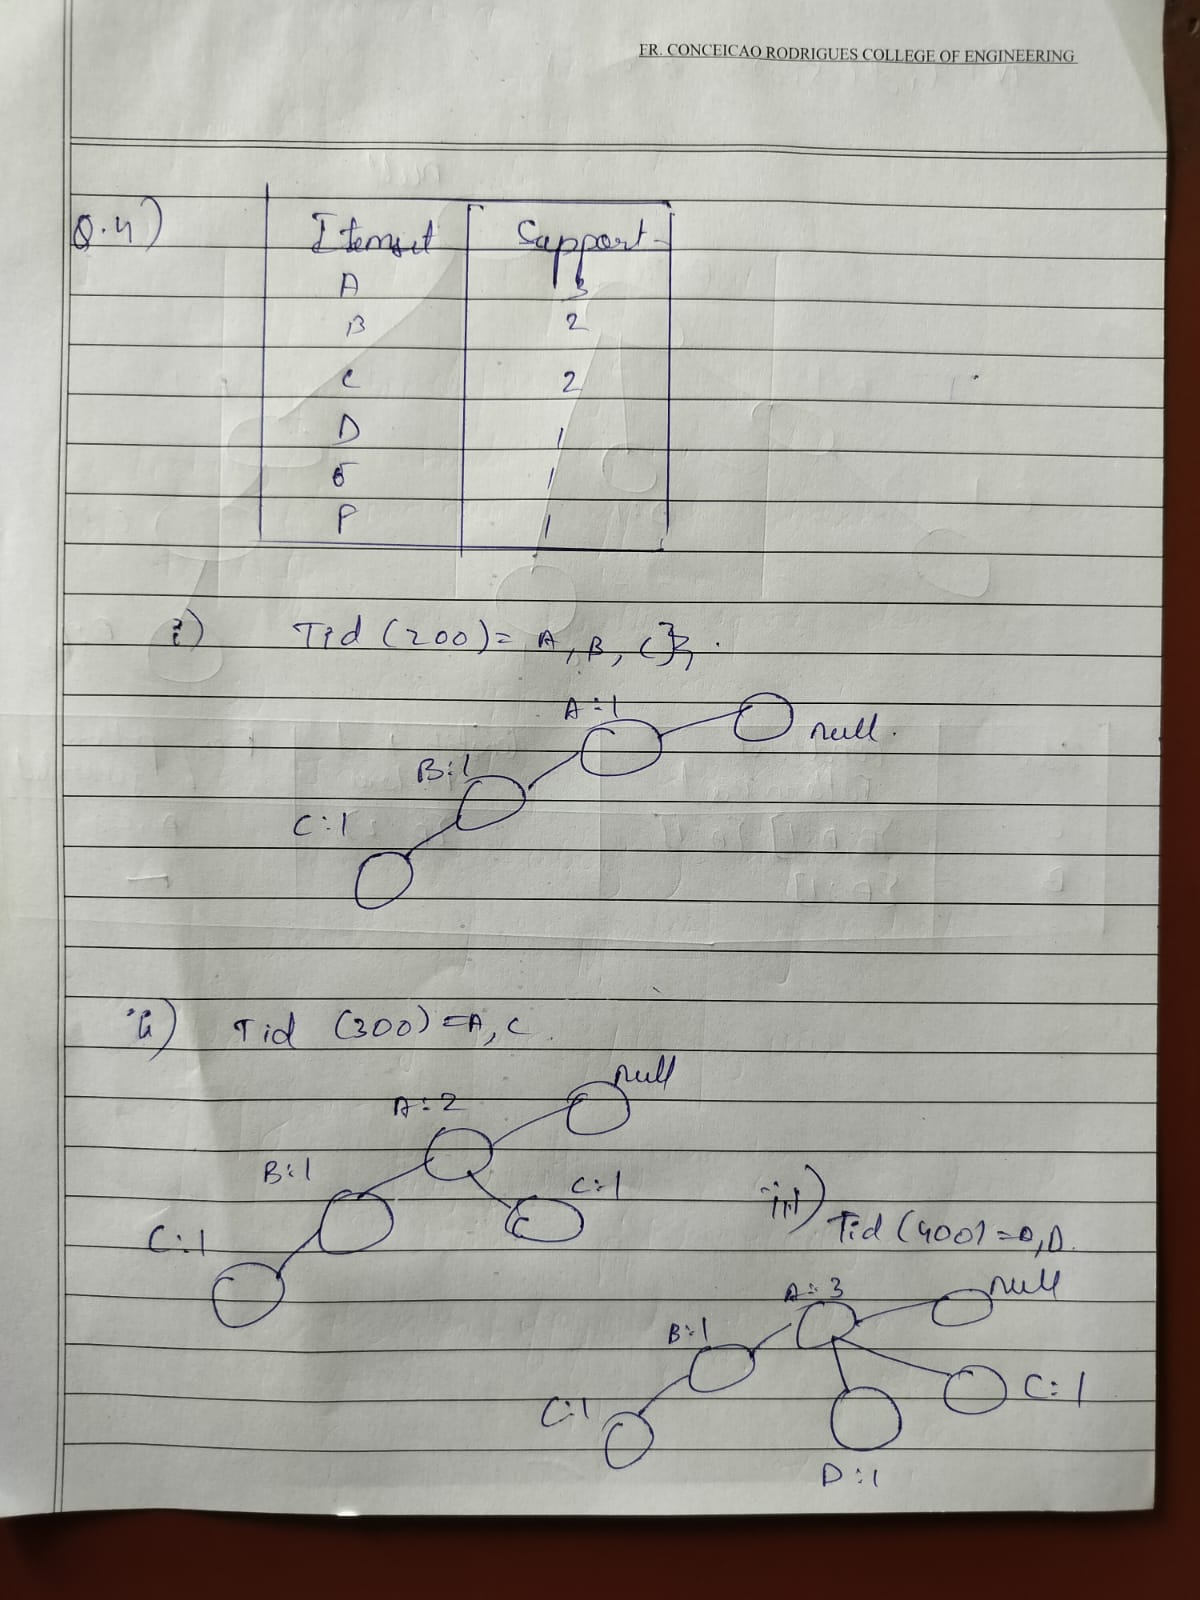 FR. CONCEICAO RODRIGUES COLLEGE OF ENGINEERING
Q.4)
Itemset Support
A 3
B 2
C 2
D 1
E 1
F 1
i) Tid (200) = A, B, C},
A:1
null.
B:1
C:1
ii) Tid (300) = A, C.
null
A:2
B:1
C:1
C:1
iii) Tid (400) = A, D.
A:3
null
B:1
C:1
C:1
D:1